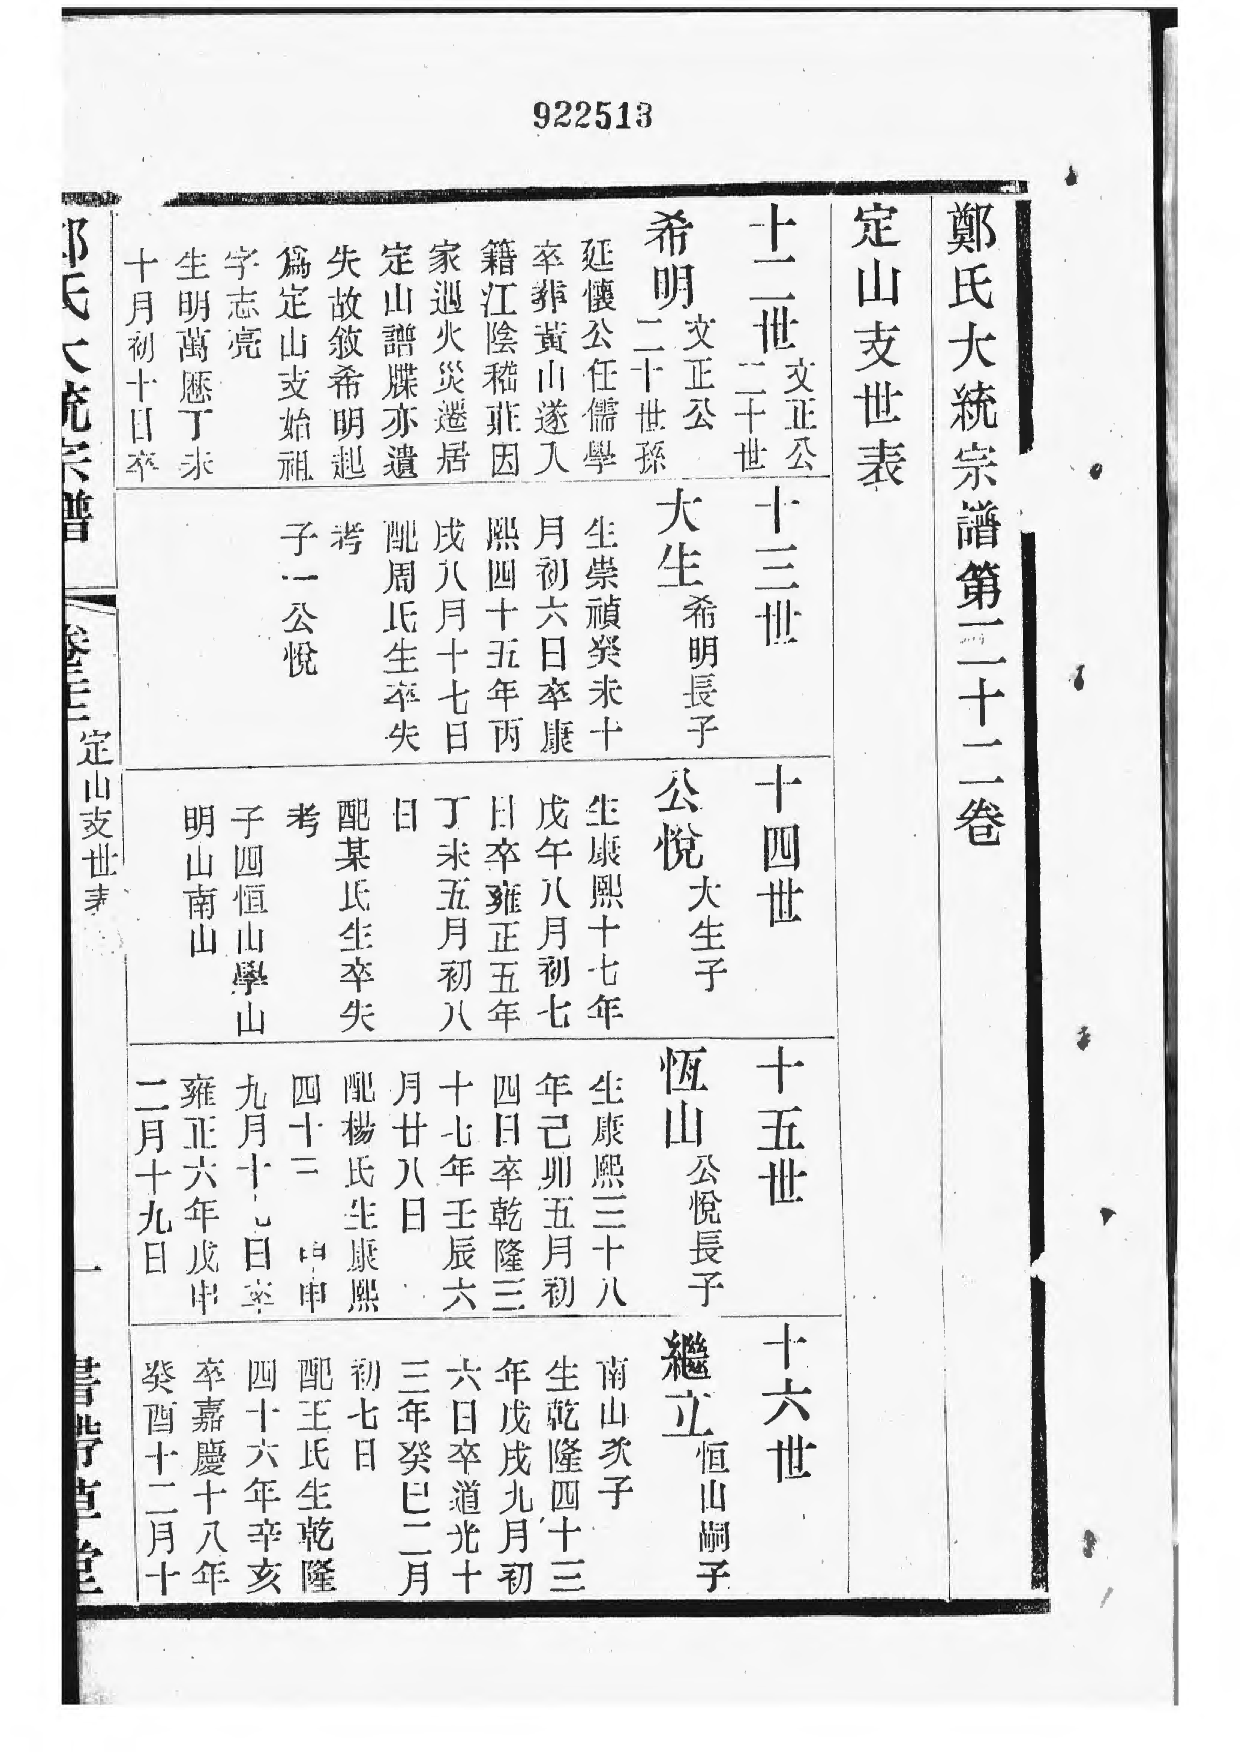 922513
鄭氏大統宗譜第二十二卷
定山支世表
十二世文正公
二十世
希明文正公
二十世孫
延懷公任儒學
卒葬黃山遂入
籍江陰稽莊因
家遇火災遷居
定山譜牒亦遺
失故敘希明起
爲定山支始祖
字志亮
生明萬曆丁未
十月初十日卒
十三世
大生希明長子
生崇禎癸未十
月初六日卒康
熙四十五年丙
戌八月十七日
配周氏生卒失
考
子一公悅
十四世
公悅大生子
生康熙十七年
戊午八月初七
日卒雍正五年
丁未五月初八
日
配某氏生卒失
考
子四恒山學山
明山南山
十五世
恆山公悅長子
生康熙三十八
年己卯五月初
四日卒乾隆三
十七年壬辰六
月廿八日
配楊氏生康熙
四十三 甲申
九月十七日卒
雍正六年戊申
二月十九日
十六世
繼立恒山嗣子
南山次子
生乾隆四十三
年戊戌九月初
六日卒道光十
三年癸巳二月
初七日
配王氏生乾隆
四十六年辛亥
卒嘉慶十八年
癸酉十二月十
鄭氏大統宗譜
定山支世表
一
書帶草堂